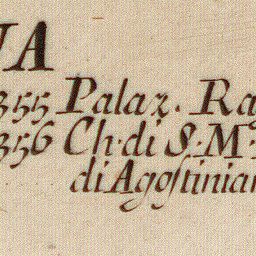 VA
355 Palaz. Ra
356 Ch. di S. M.
di Agoſtinian